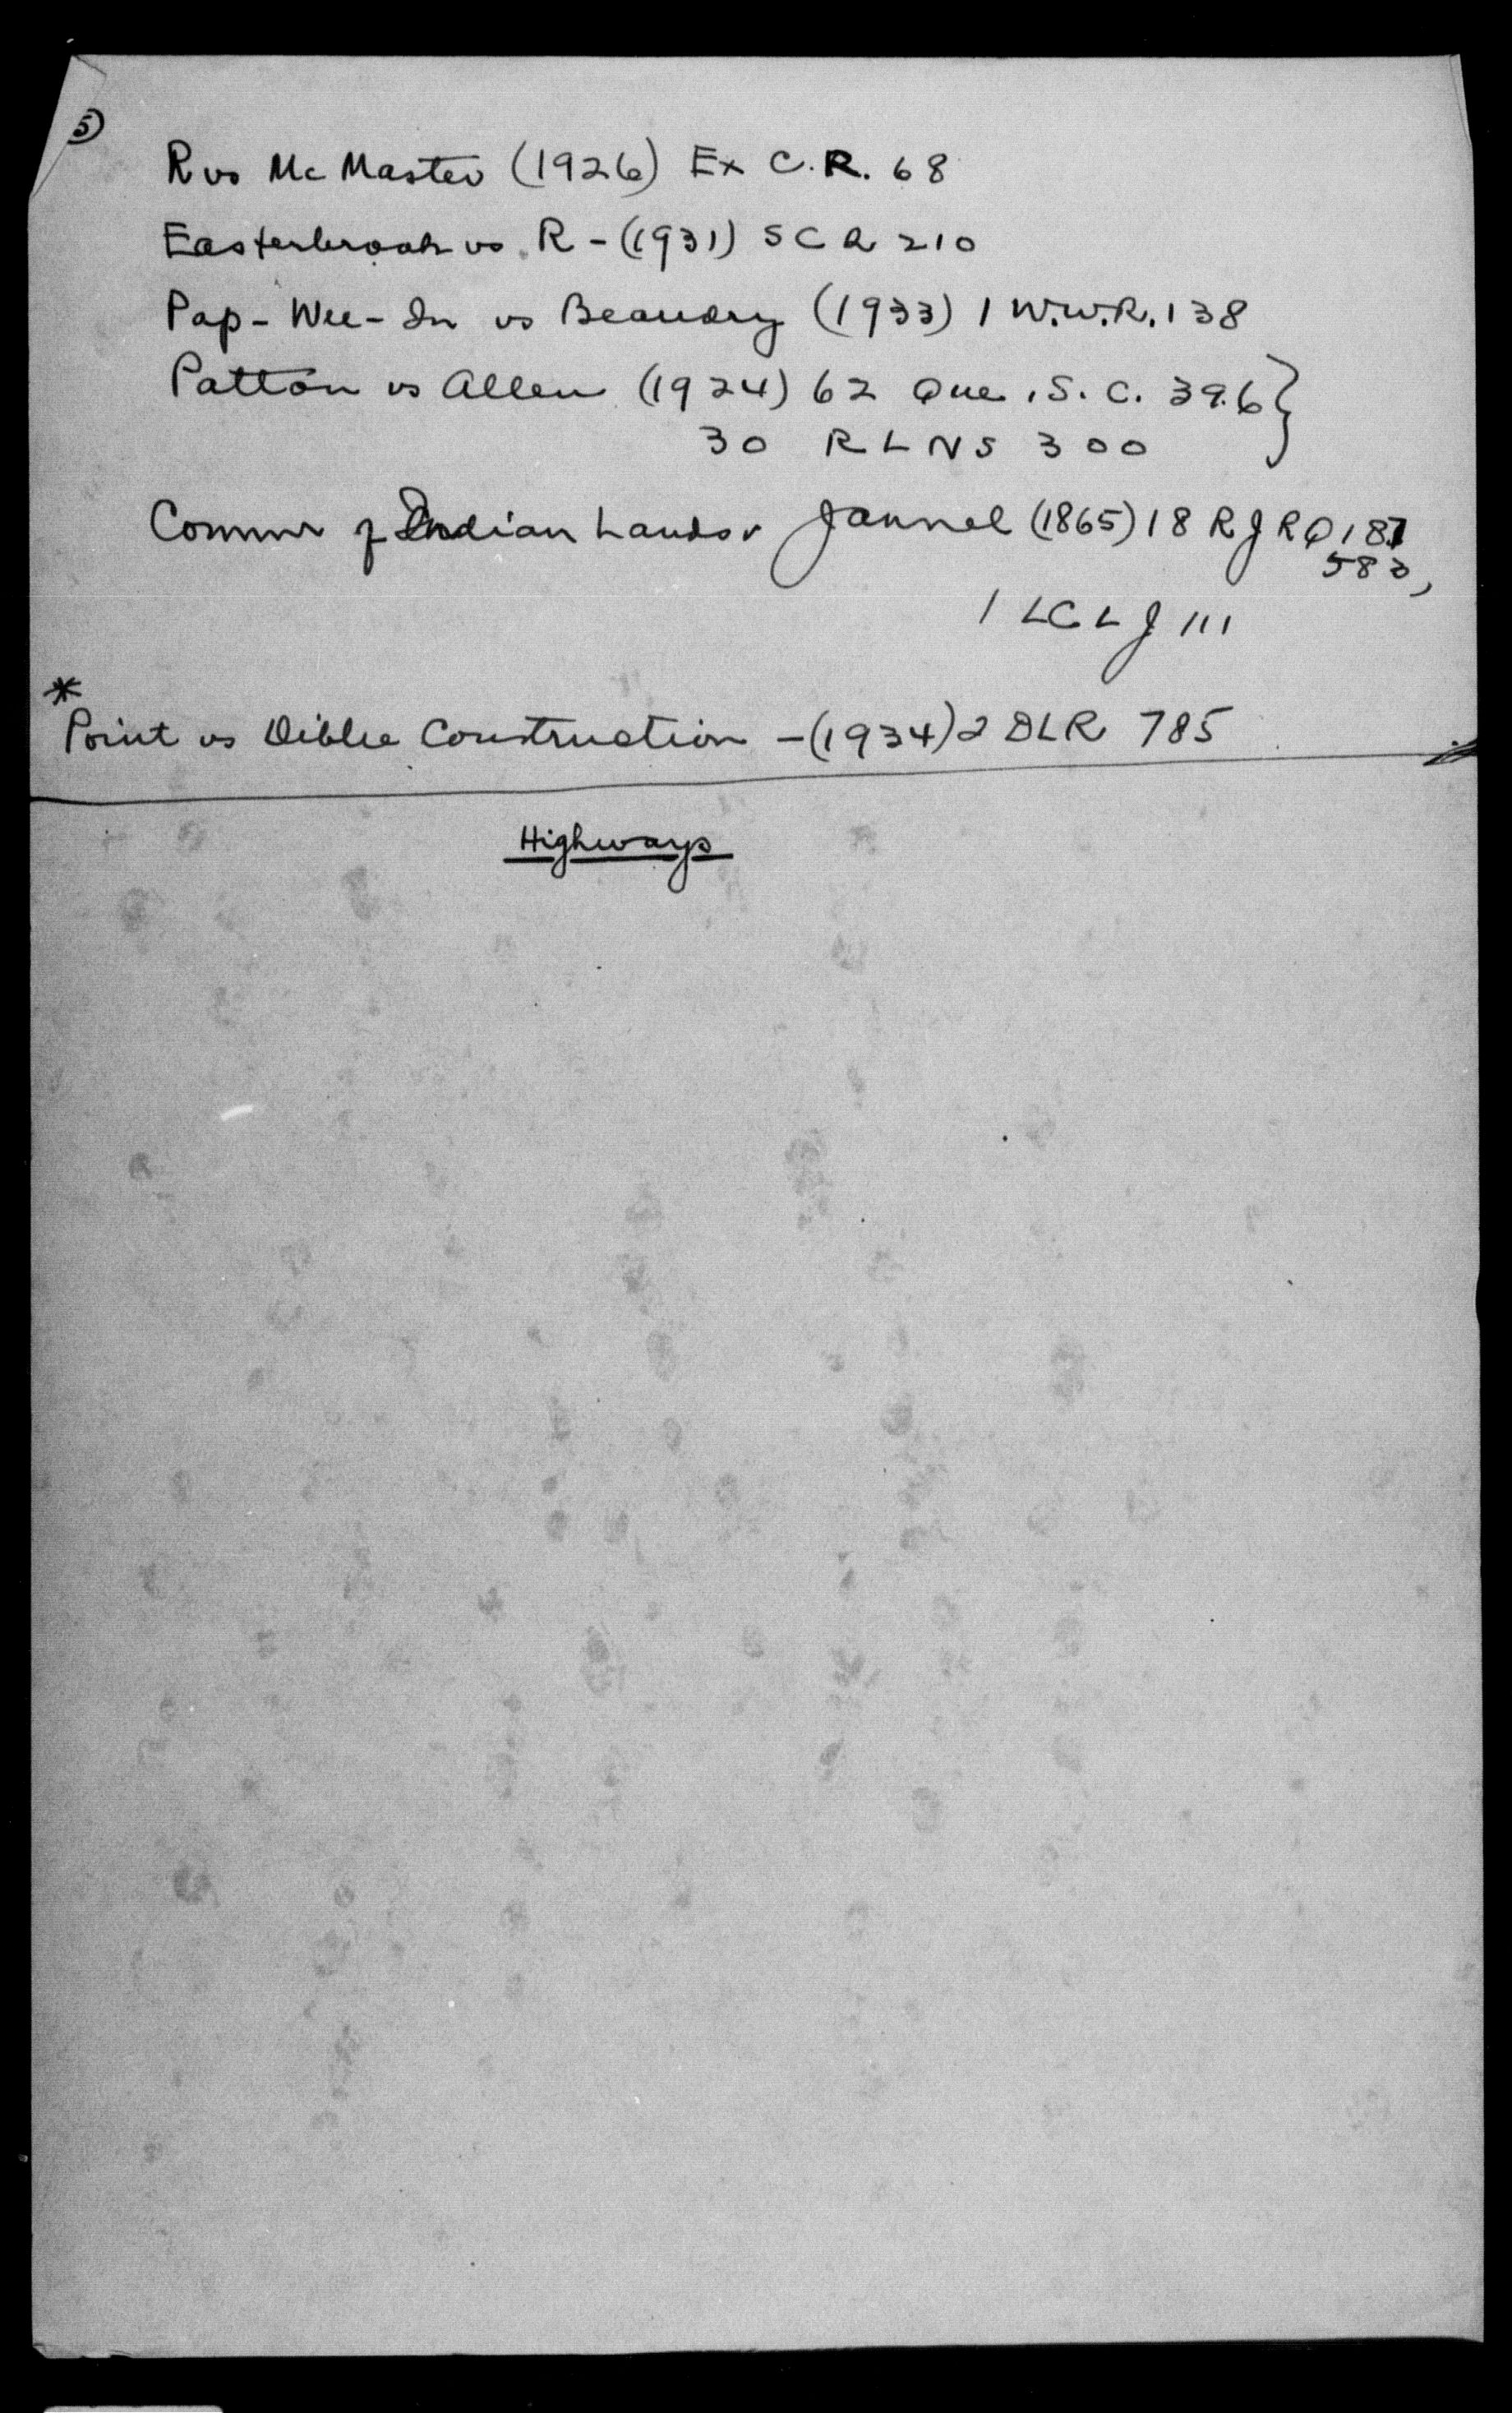 5
R vs McMaster (1926) Ex C.R. 68
Easterbrook vs. R - (1931) SCR 210
Pap-Wee-In vs Beaudry (1933) 1 W.W.R. 138
Patton vs Allen (1924) 62 Que. S.C. 396 }
30 RLNS 300
Commr of Indian Lands v Jannel (1865) 18 RJRQ 187
583,
1 LCLJ 111
*
Point vs Diblee Construction - (1934) 2 DLR 785
Highways